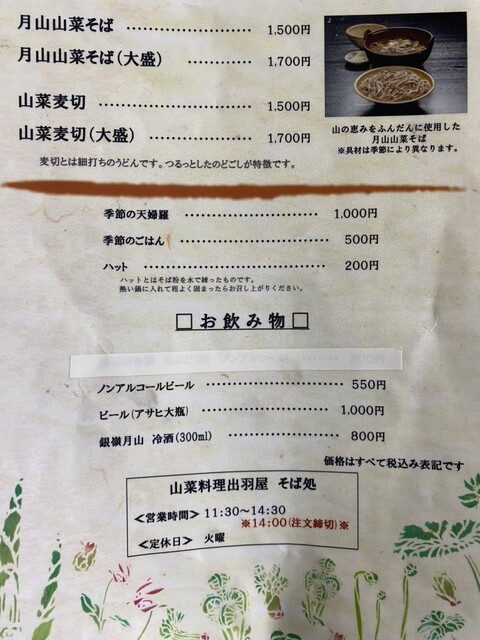 月山山菜そば ………………… 1,500円
月山山菜そば(大盛) ………… 1,700円
山菜麦切 ……………………… 1,500円
山菜麦切(大盛) ……………… 1,700円
麦切とは細打ちのうどんです。つるっとしたのどごしが特徴です。
山の恵みをふんだんに使用した
月山山菜そば
※具材は季節により異なります。
季節の天婦羅 ………………… 1,000円
季節のごはん ………………… 500円
ハット ………………………… 200円
ハットとはそば粉を水で練ったものです。
熱い鍋に入れて程よく固まったらお召し上がりください。
□お飲み物□
ノンアルコールビール ……………… 550円
ビール(アサヒ大瓶) ……………… 1,000円
銀嶺月山 冷酒(300ml) …………… 800円
価格はすべて税込み表記です
山菜料理出羽屋 そば処
<営業時間> 11:30~14:30
※14:00(注文締切)※
<定休日> 火曜